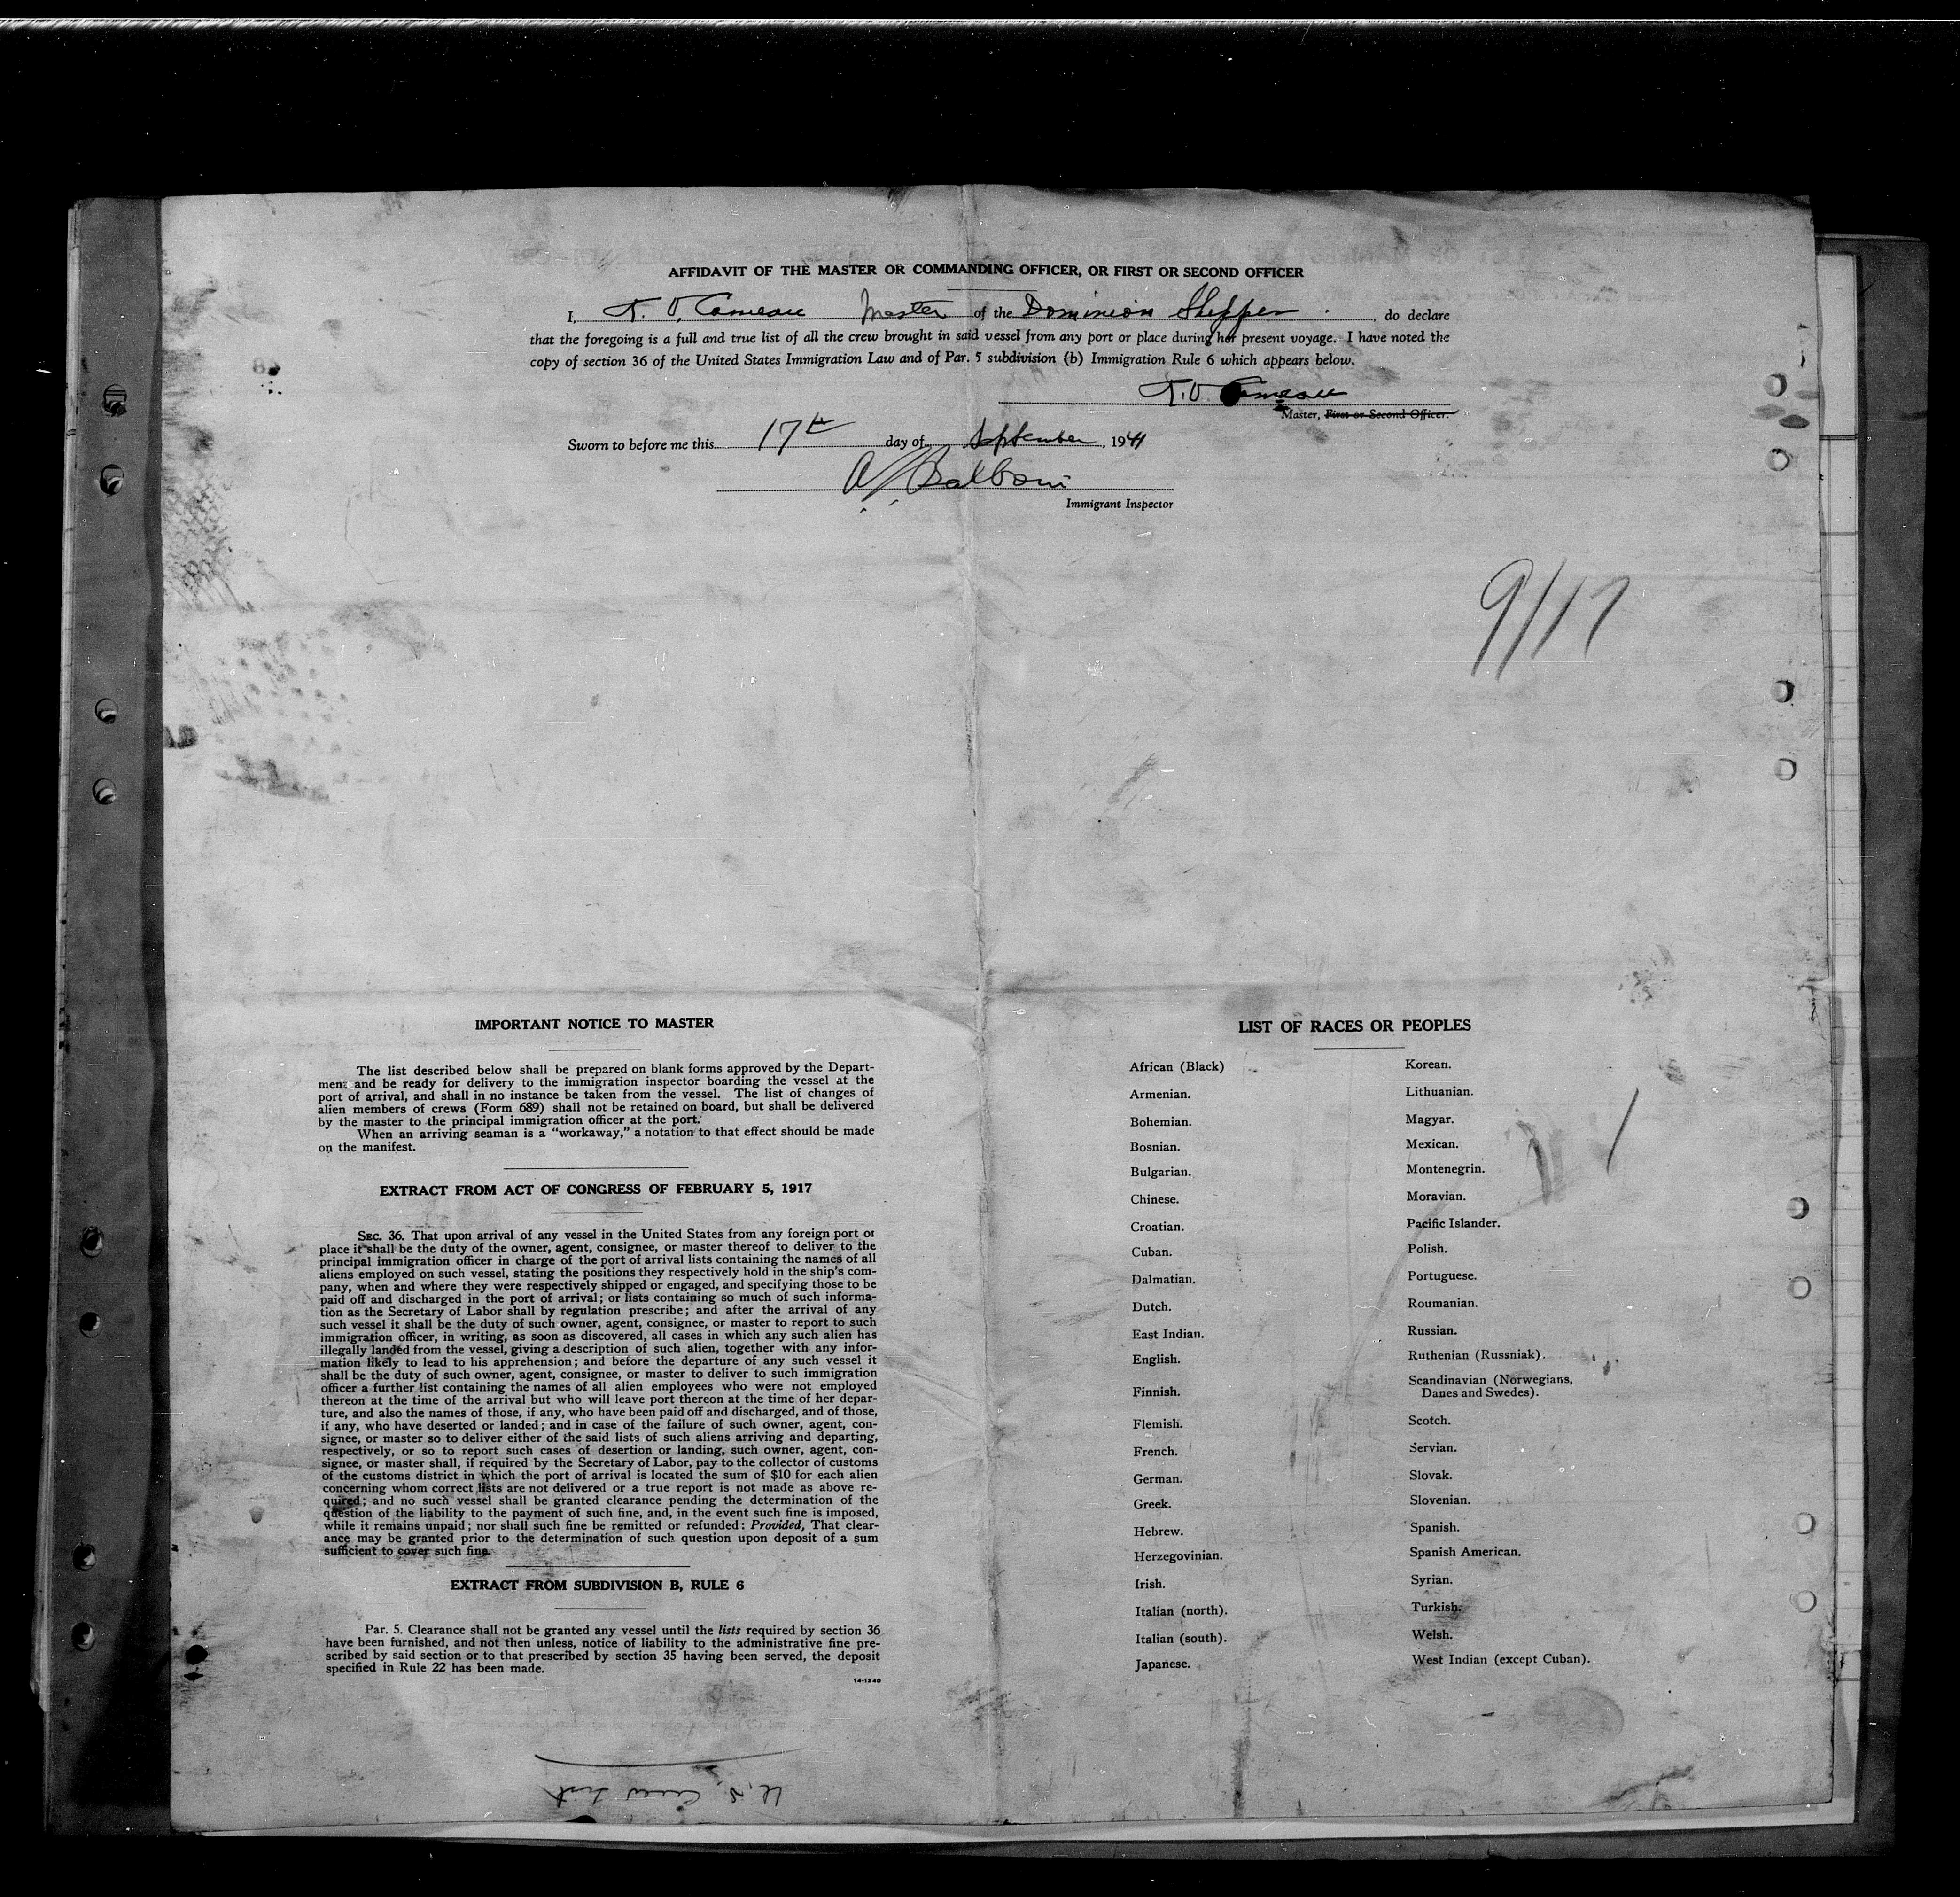 AFFIDAVIT OF THE MASTER OR COMMANDING OFFICER, OR FIRST OR SECOND OFFICER
I, T. V. Comeau Master of the Dominion Shipper, do declare
that the foregoing is a full and true list of all the crew brought in said vessel from any port or place during her present voyage. I have noted the
copy of section 36 of the United States Immigration Law and of Par. 5 subdivision (b) Immigration Rule 6 which appears below.
T. V. Comeau
Master, First or Second Officer.
Sworn to before me this 17th day of September, 1941
Balboni
Immigrant Inspector
9/17
IMPORTANT NOTICE TO MASTER
The list described below shall be prepared on blank forms approved by the Depart-
ment and be ready for delivery to the immigration inspector boarding the vessel at the
port of arrival, and shall in no instance be taken from the vessel. The list of changes of
alien members of crews (Form 689) shall not be retained on board, but shall be delivered
by the master to the principal immigration officer at the port.
When an arriving seaman is a "workaway," a notation to that effect should be made
on the manifest.
EXTRACT FROM ACT OF CONGRESS OF FEBRUARY 5, 1917
SEC. 36. That upon arrival of any vessel in the United States from any foreign port or
place it shall be the duty of the owner, agent, consignee, or master thereof to deliver to the
principal immigration officer in charge of the port of arrival lists containing the names of all
aliens employed on such vessel, stating the positions they respectively hold in the ship's com-
pany, when and where they were respectively shipped or engaged, and specifying those to be
paid off and discharged in the port of arrival; or lists containing so much of such informa-
tion as the Secretary of Labor shall by regulation prescribe; and after the arrival of any
such vessel it shall be the duty of such owner, agent, consignee, or master to report to such
immigration officer, in writing, as soon as discovered, all cases in which any such alien has
illegally landed from the vessel, giving a description of such alien, together with any infor-
mation likely to lead to his apprehension; and before the departure of any such vessel it
shall be the duty of such owner, agent, consignee, or master to deliver to such immigration
officer a further list containing the names of all alien employees who were not employed
thereon at the time of the arrival but who will leave port thereon at the time of her depar-
ture, and also the names of those, if any, who have been paid off and discharged, and of those,
if any, who have deserted or landed; and in case of the failure of such owner, agent, con-
signee, or master so to deliver either of the said lists of such aliens arriving and departing,
respectively, or so to report such cases of desertion or landing, such owner, agent, con-
signee, or master shall, if required by the Secretary of Labor, pay to the collector of customs
of the customs district in which the port of arrival is located the sum of $10 for each alien
concerning whom correct lists are not delivered or a true report is not made as above re-
quired; and no such vessel shall be granted clearance pending the determination of the
question of the liability to the payment of such fine, and, in the event such fine is imposed,
while it remains unpaid; nor shall such fine be remitted or refunded: Provided, That clear-
ance may be granted prior to the determination of such question upon deposit of a sum
sufficient to cover such fine.
EXTRACT FROM SUBDIVISION B, RULE 6
Par. 5. Clearance shall not be granted any vessel until the lists required by section 36
have been furnished, and not then unless, notice of liability to the administrative fine pre-
scribed by said section or to that prescribed by section 35 having been served, the deposit
specified in Rule 22 has been made.
14-1240
U.S. Crew List
LIST OF RACES OR PEOPLES
African (Black)
Armenian.
Bohemian.
Bosnian.
Bulgarian.
Chinese.
Croatian.
Cuban.
Dalmatian.
Dutch.
East Indian.
English.
Finnish.
Flemish.
French.
German.
Greek.
Hebrew.
Herzegovinian.
Irish.
Italian (north).
Italian (south).
Japanese.
Korean.
Lithuanian.
Magyar.
Mexican.
Montenegrin.
Moravian.
Pacific Islander.
Polish.
Portuguese.
Roumanian.
Russian.
Ruthenian (Russniak).
Scandinavian (Norwegians,
Danes and Swedes).
Scotch.
Servian.
Slovak.
Slovenian.
Spanish.
Spanish American.
Syrian.
Turkish.
Welsh.
West Indian (except Cuban).